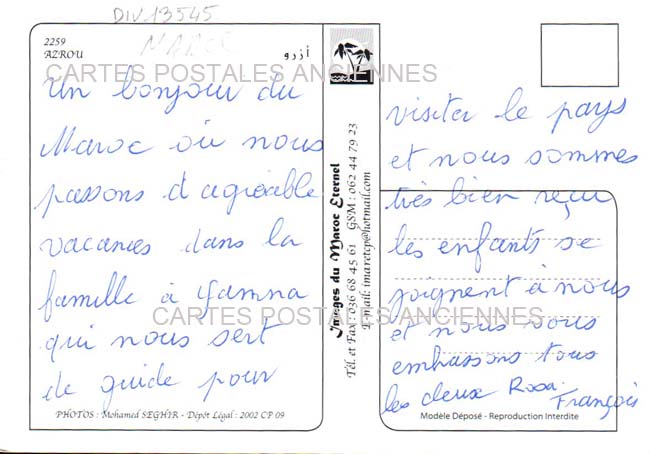 DIV13545
MAROC
2259
AZROU
أزرو
CARTES POSTALES ANCIENNES
Un bonjour du
Maroc où nous
passons d'agréable
vacances dans la
famille à Yamna
qui nous sert
de guide pour
PHOTOS : Mohamed SEGHIR - Dépôt Légal : 2002 CP 09
Images du Maroc Eternel
Tél. et Fax : 036 68 45 61 GSM : 062 44 79 23
E-mail: imaretep@hotmail.com
visiter le pays
et nous sommes
très bien reçu
les enfants se
joignent à nous
et nous vous
embrassons tous
les deux Rosa.
François
CARTES POSTALES ANCIENNES
Modèle Déposé - Reproduction Interdite